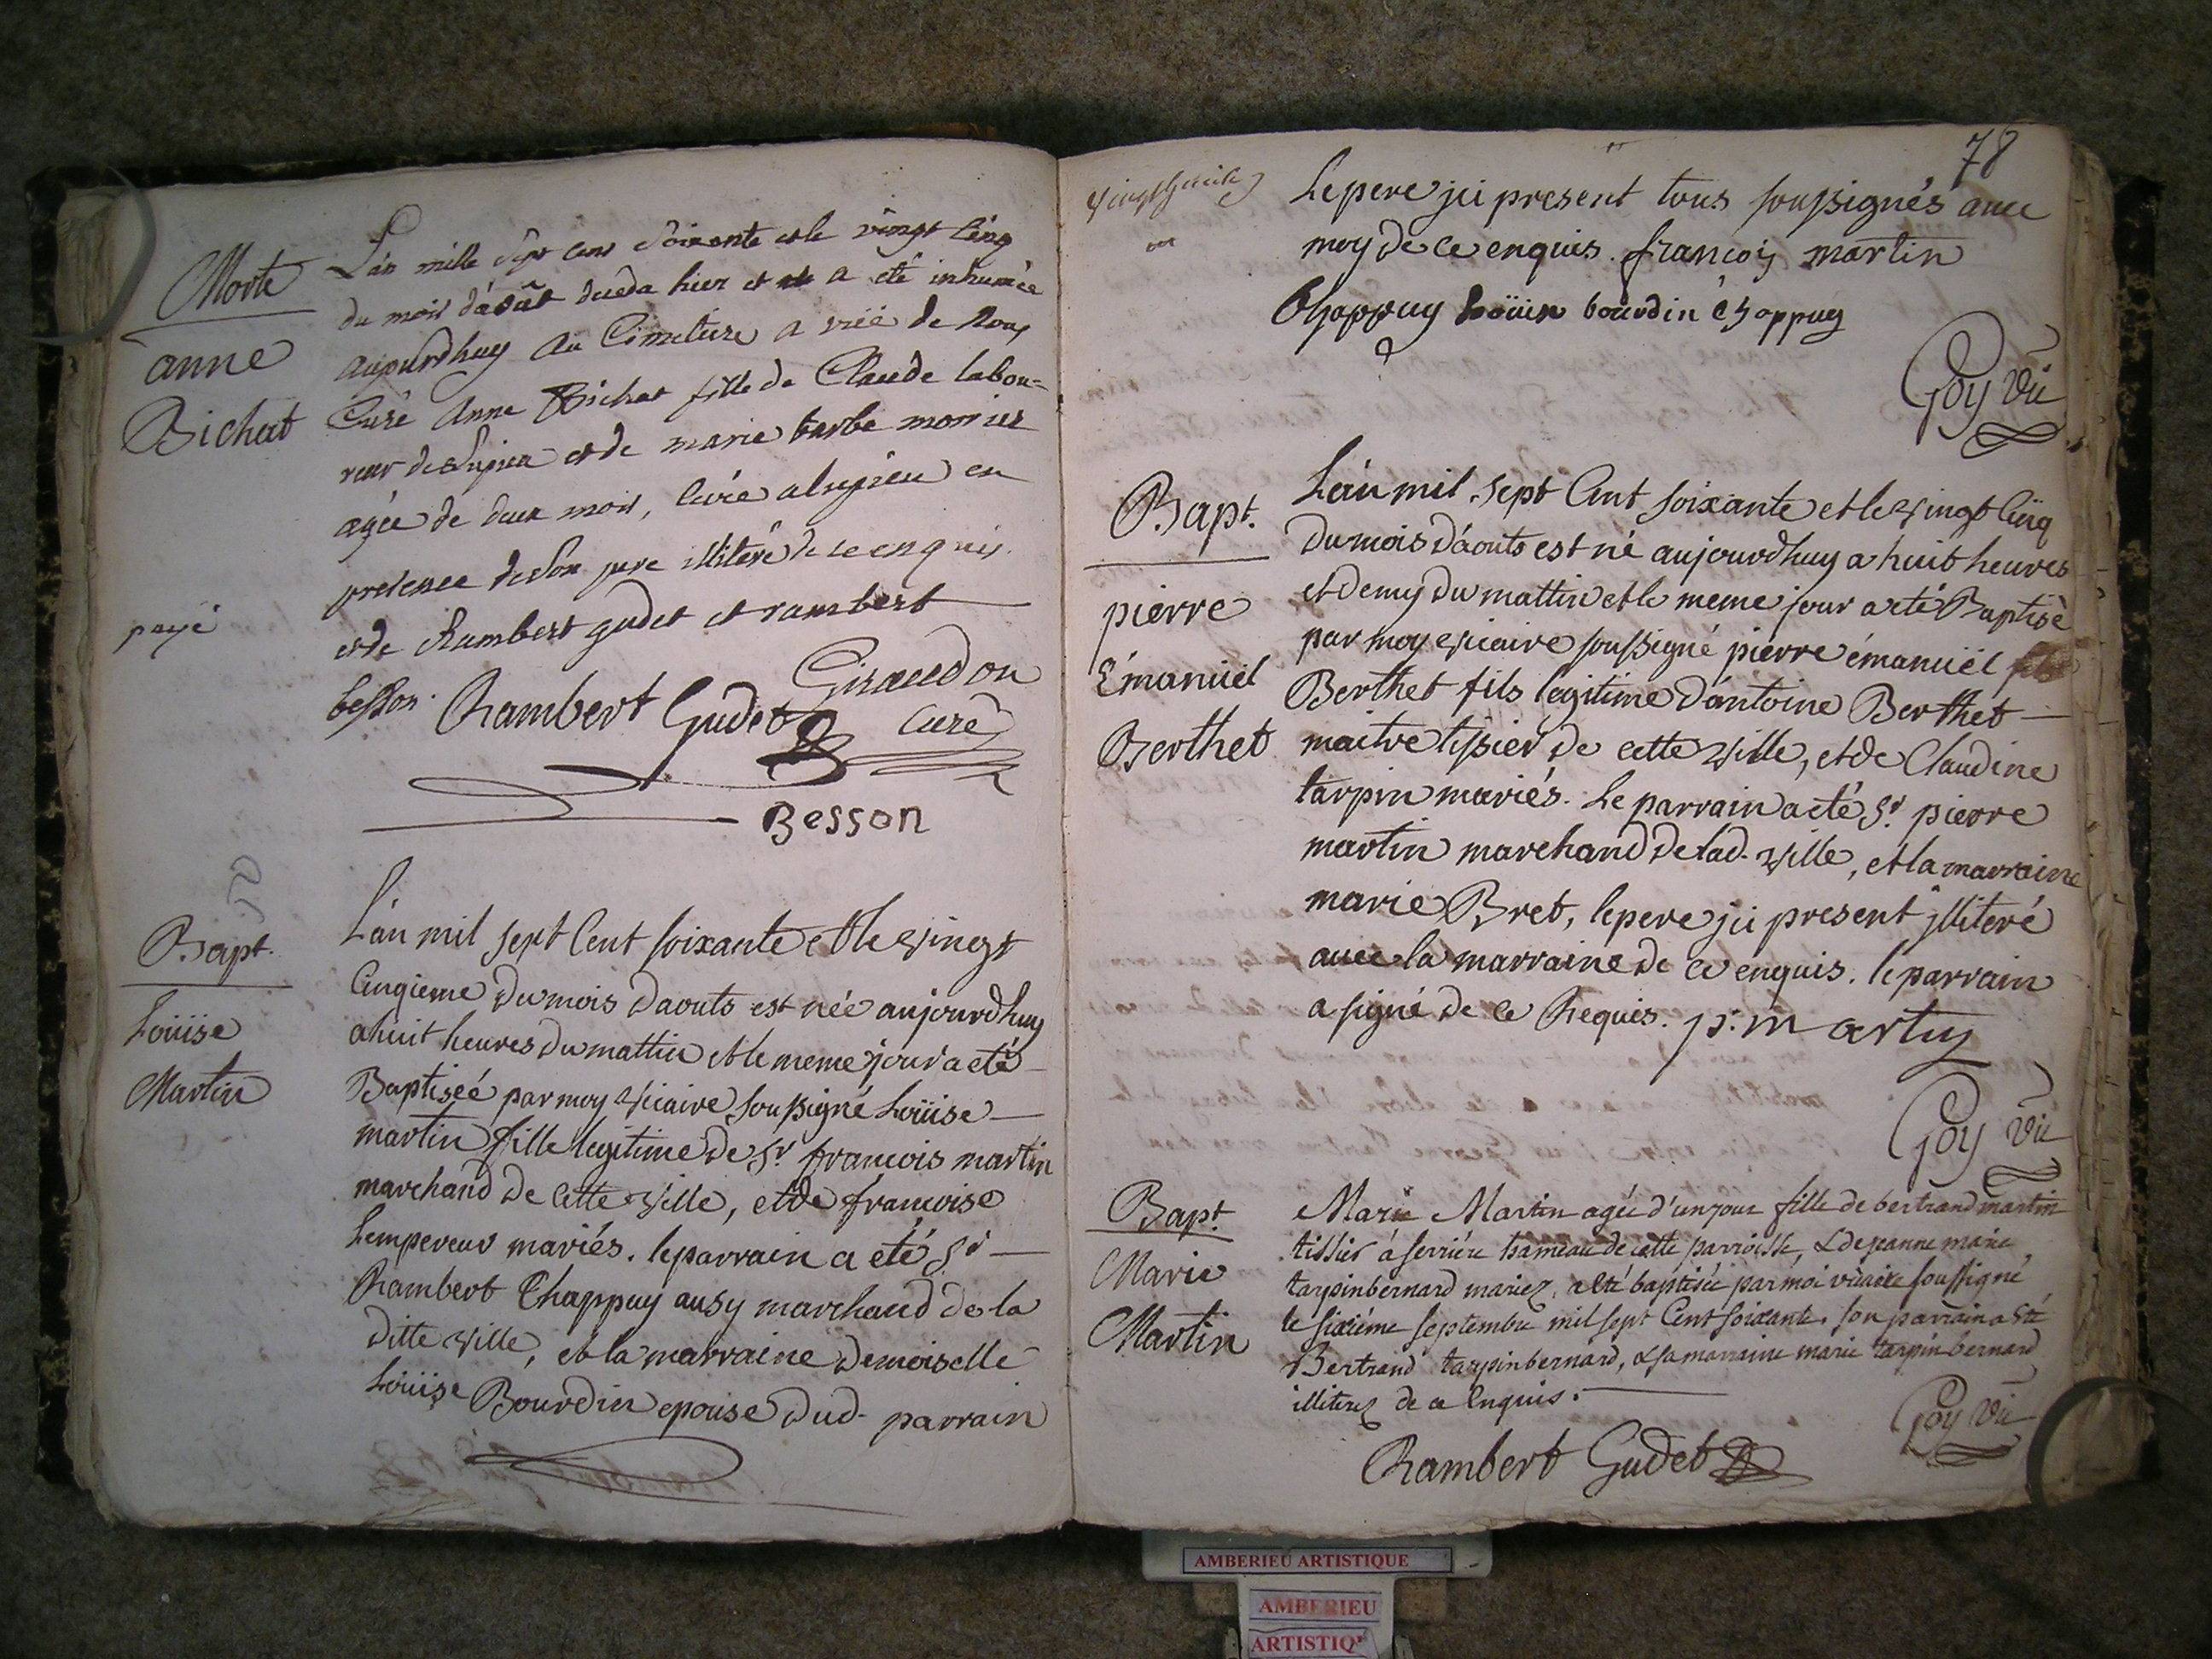 Morte
anne
Bichat
payé
L'an mille sept cens soixante et le vingt cinq
du mois d'aoûst deceda hier et a eté inhumée
aujourdhuy au Cimetiere a vüe de nous
Curé anne Bichat fille de Claude labou=
reur de et de marie barbe monier
agée de deux mois, en
presence de son pere illiteré de ce enquis
et de Rambert gudet et rambert
besson. Rambert Gudet Giraudon
Curé
Besson
Bapt.
Loüise
Martin
L'an mil sept Cent soixante et le vingt
Cinqieme du mois daouts est née aujourdhuy
a huit heures du mattin et le meme jour a eté
Baptiseé par moy vicaire soussigné Loüise
martin fille legitime de Sr. francois martin
marchand de Cette ville, et de francoise
Lempereur mariés. le parrain a eté Sr.
Rambert Chappuy ausy marchand de la
ditte ville, et la marraine demoiselle
Loüise Bourdin epouse dud. parrain
78
Le pere jci present tous soussignés avec
moy de ce enquis. francois martin
Chappuy Loüise bourdin chappuy
Goy vic
Bapt.
pierre
Emanüel
Berthet
L'an mil sept Cent soixante et le vingt Cinq
du mois d'aouts est né aujourdhuy a huit heures
et demy du mattin et le meme jour a eté Baptisé
par moy vicaire soussigné pierre émanüel
Berthet fils legitime d'antoine Berthet
maitre tissier de cette ville, et de Claudine
tarpin mariés. Le parrain a eté Sr. pierre
martin marchand de lad. ville, et la marraine
marie Bret, le pere jci present jlliteré
avec la marraine de ce enquis. le parrain
a signé de ce Requis. p. martin
Goy vic
Bapt.
Marie
Martin
Marie Martin agée d'un jour fille de bertrand martin
tissier a serriere hameau de cette parroisse, & de jeanne marie
tarpinbernard mariez, a eté baptisée par moi vicaire soussigné
le sixiéme septembre mil sept Cent soixante. son parrain a eté
Bertrand tarpinbernard, & sa marraine marie tarpinbernard
illiterez de ce Enquis.
Goy vic
Rambert Gudet
AMBERIEU ARTISTIQUE
AMBERIEU
ARTISTIQ